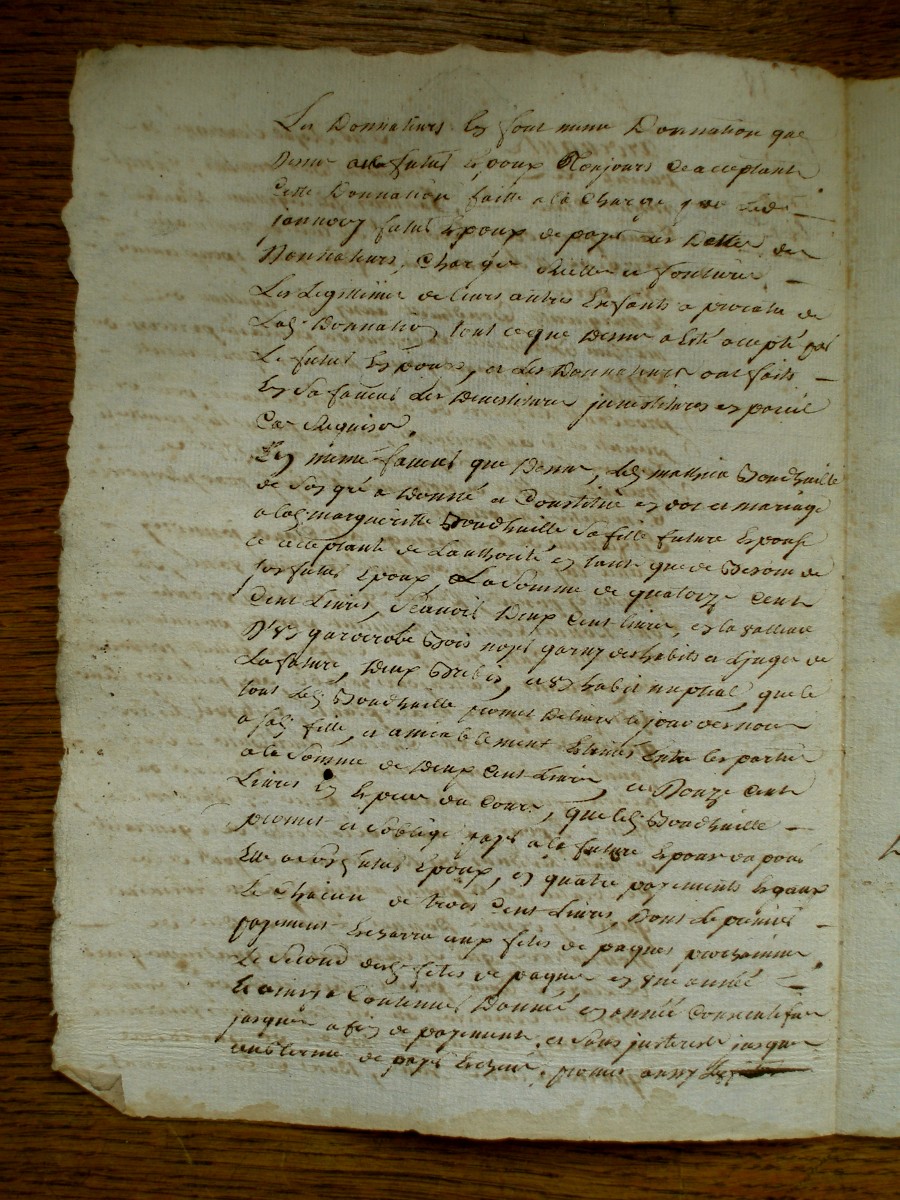 Les Donnateurs En font meme Donnation que
Dessus au futur Epoux Toujours ce acceptant
Cette Donnation faitte a la Charge que Led
jannoy futur Epoux de payer les Dettes des
Donnateurs, Charges Reelles et foncieres
Les Legitimes de leurs autres Enfants a prorata de
Lad. Donnation tout ce que Dessus a Esté accepté par
Le futur Epoux, et Les Donnateurs ont faits
En Sa faveur Les Devestitures jnvestitures en pareil
Cas Requises.
En même faveur que Dessus, Led. mathieu
de Son gré a Donné et Constitué en dot et mariage
a lad. margueritte Sa fille future Epouse
ce acceptante de L'authorité en tant que de Besoin de
Son futur Epoux, La Somme de quatorze Cent
Livres, Sçauoir Deux Cent Livres, en la valleur
D'un garderobe Bois noyer garny des habits et Linges de
La future, Deux Brebis, et un habit nuptial, que le
tout Led. promet Delivrer le jour des noces
a Sad. fille, et amiablement Estimé Entre les parties
a la Somme de Deux Cent Livres, et Douze Cent
Livres En Espece du Cours, que led.
promet et S'oblige payer a la future Epouse ou pour
Elle a Son futur Epoux, en quatre payements Egaux
de Chacun de trois Cent Livres, Dont Le premier
payement Escherra aux fetes de paques prochaine,
Le Second desd. fetes de paques en une année
Et ainsy a Continuer D'année en année Consecutives
jusques a fin de payement, et Sans jnterets jusques
au terme de payer Escheu,